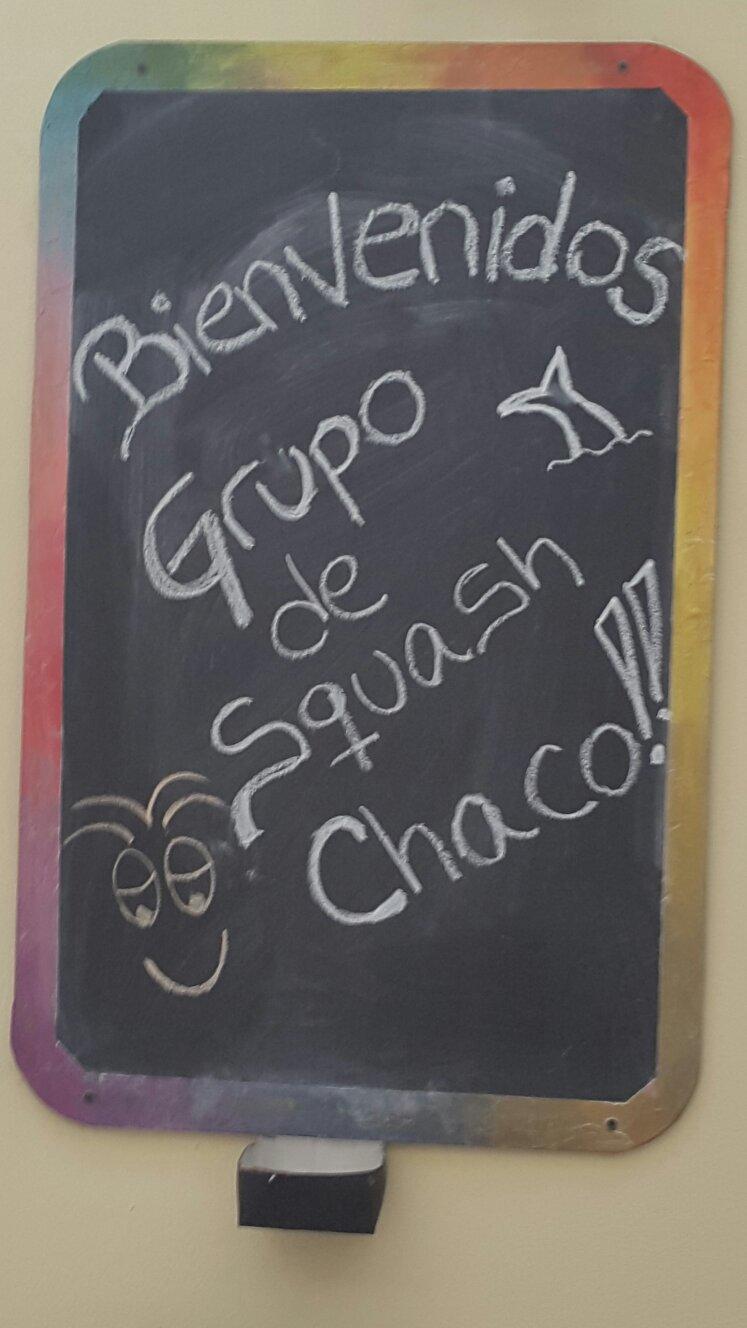 Bienvenidos
Grupo
de
Squash
Chaco!!